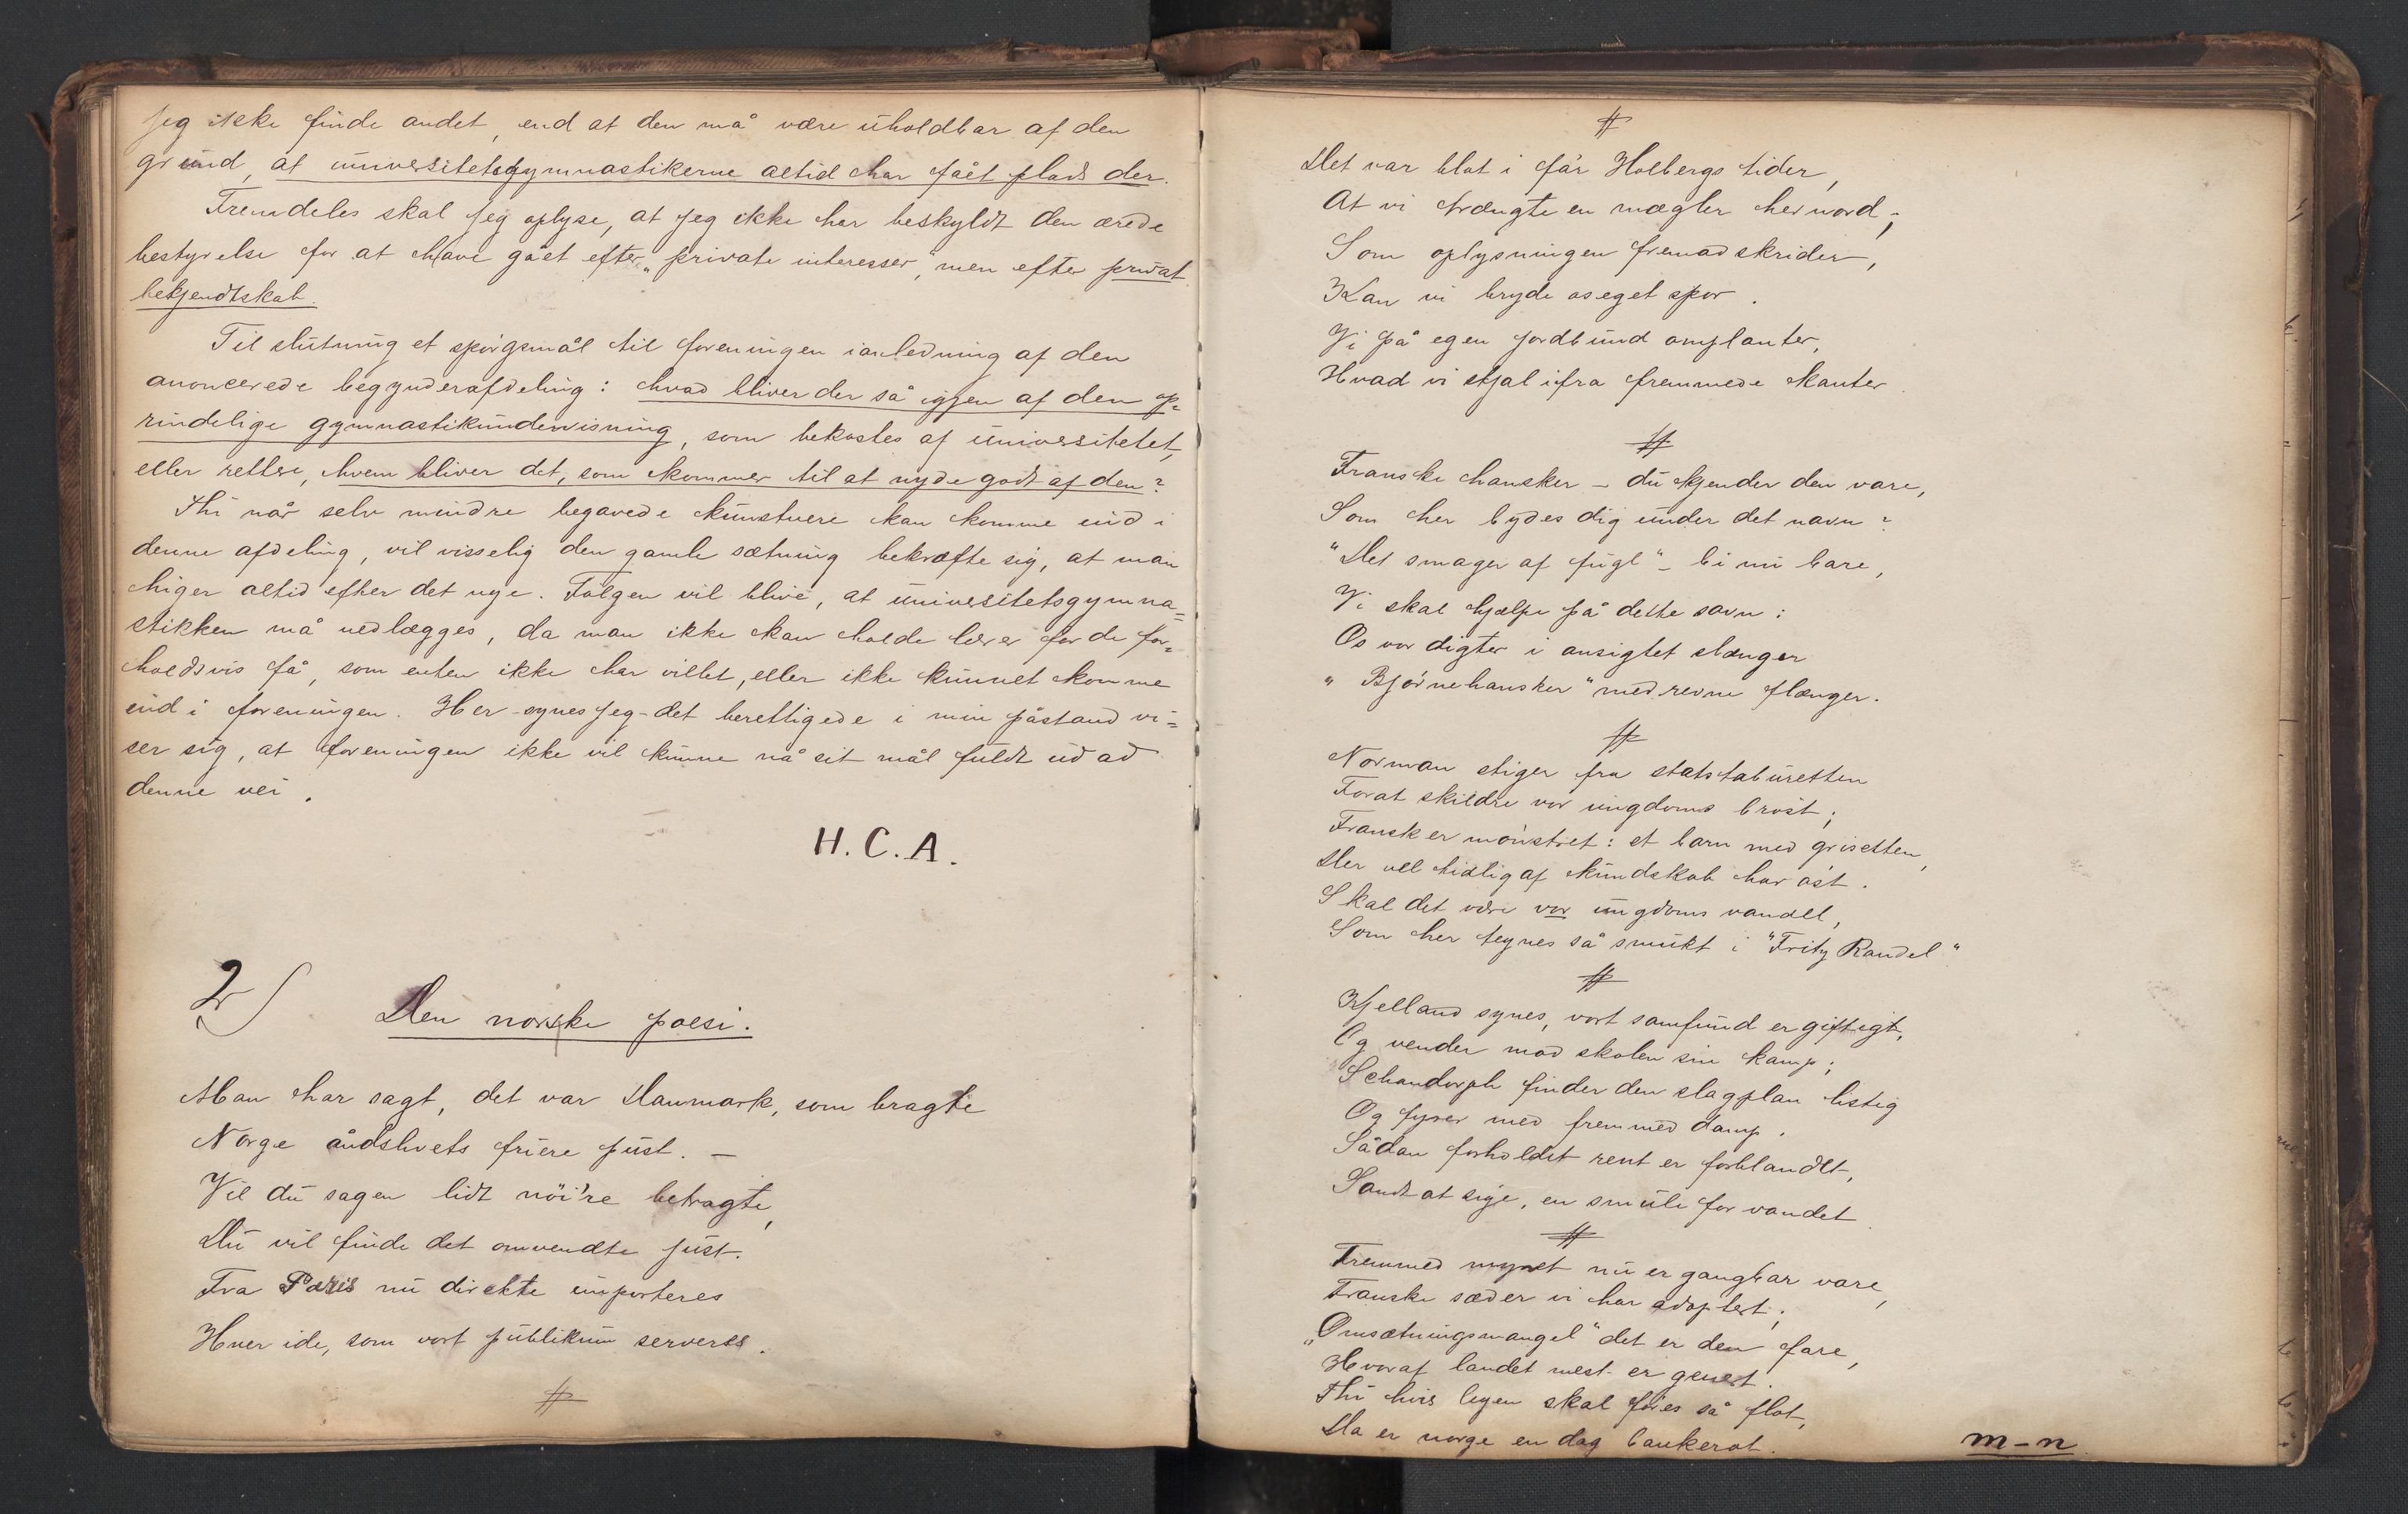 jeg ikke finde andet, end at den må være uholdbar af den
grund, at universitetsgymnastikerne altid har fået plads der.
Fremdeles skal jeg oplyse, at jeg ikke har beskyldt den ærede
bestyrelse for at have gået efter „private interesser", men efter privat
bekjendtskab.
Til slutning et spörgsmål til foreningen ianledning af den
anoncerede begynderafdeling: hvad bliver der så igjen af den op=
rindelige gymnastikundervisning, som bekostes af universitetet,
eller rettere, hvem bliver det, som kommer til at nyde godt af den?
Thi når selv mindre begavede kunstnere kan komme ind i
denne afdeling, vil visselig den gamle sætning bekræfte sig, at man
higer altid efter det nye. Følgen vil blive, at universitetsgymna=
stikken må nedlægges, da man ikke kan holde lærer for de for=
holdsvis få, som enten ikke har villet, eller ikke kunnet komme
ind i foreningen. Her – synes jeg – det berettigede i min påstand vi=
ser sig, at foreningen ikke vil kunne nå sit mål fuldt ud ad
denne vei.
H. C. A.
2)
Den norske poesi.
Man har sagt, det var Danmark, som bragte
Norge åndslivets friere pust. –
Vil du sagen lidt nöi're betragte,
Du vil finde det omvendte just.
Fra Paris nu direkte importeres
Hver ide, som vort publikum serveres.
#
#
Det var blot i får Holbergs tider,
At vi trængte en mægler her nord;
Som oplysningen fremad skrider,
Kan vi bryde os eget spor.
Vi på egen jordbund omplanter,
Hvad vi stjal ifra fremmede kanter.
#
Franske hansker – du kjender den vare,
Som her bydes dig under det navn?
"Det smager af fugl" – bi nu bare,
Vi skal hjælpe på dette savn:
Os vor digter i ansigtet slænger
"Björnehansker" med revne flænger.
#
Norman stiger fra statstaburetten
Forat skildre vor ungdoms bröst;
Fransk er mönstret: et barn med grisetten,
Der vel tidlig af kundskab har öst.
Skal det være vor ungdoms vandel,
Som her tegnes så smukt i "Fritz Randel"
#
Kjelland synes, vort samfund er giftigt,
Og vender mod skolen sin kamp;
Schandorph finder den slagplan listig
Og fyrer med fremmed damp.
Sådan forholdet rent er forblandet,
Sandt at sige, en smule for vandet.
#
Fremmed mynt nu er gangbar vare,
Franske sæder vi har adoptert;
„Omsætningsmangel" det er den fare,
Hvoraf landet mest er genert.
Thi hvis legen skal föres så flot,
Da er norge en dag bankerot.
m–n.